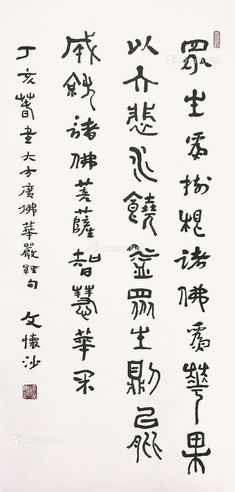 眾生為樹根諸佛為華果
以大悲水饒益眾生則能
成就諸佛菩薩智慧華果
丁亥春書大方廣佛華嚴經句 文懷沙